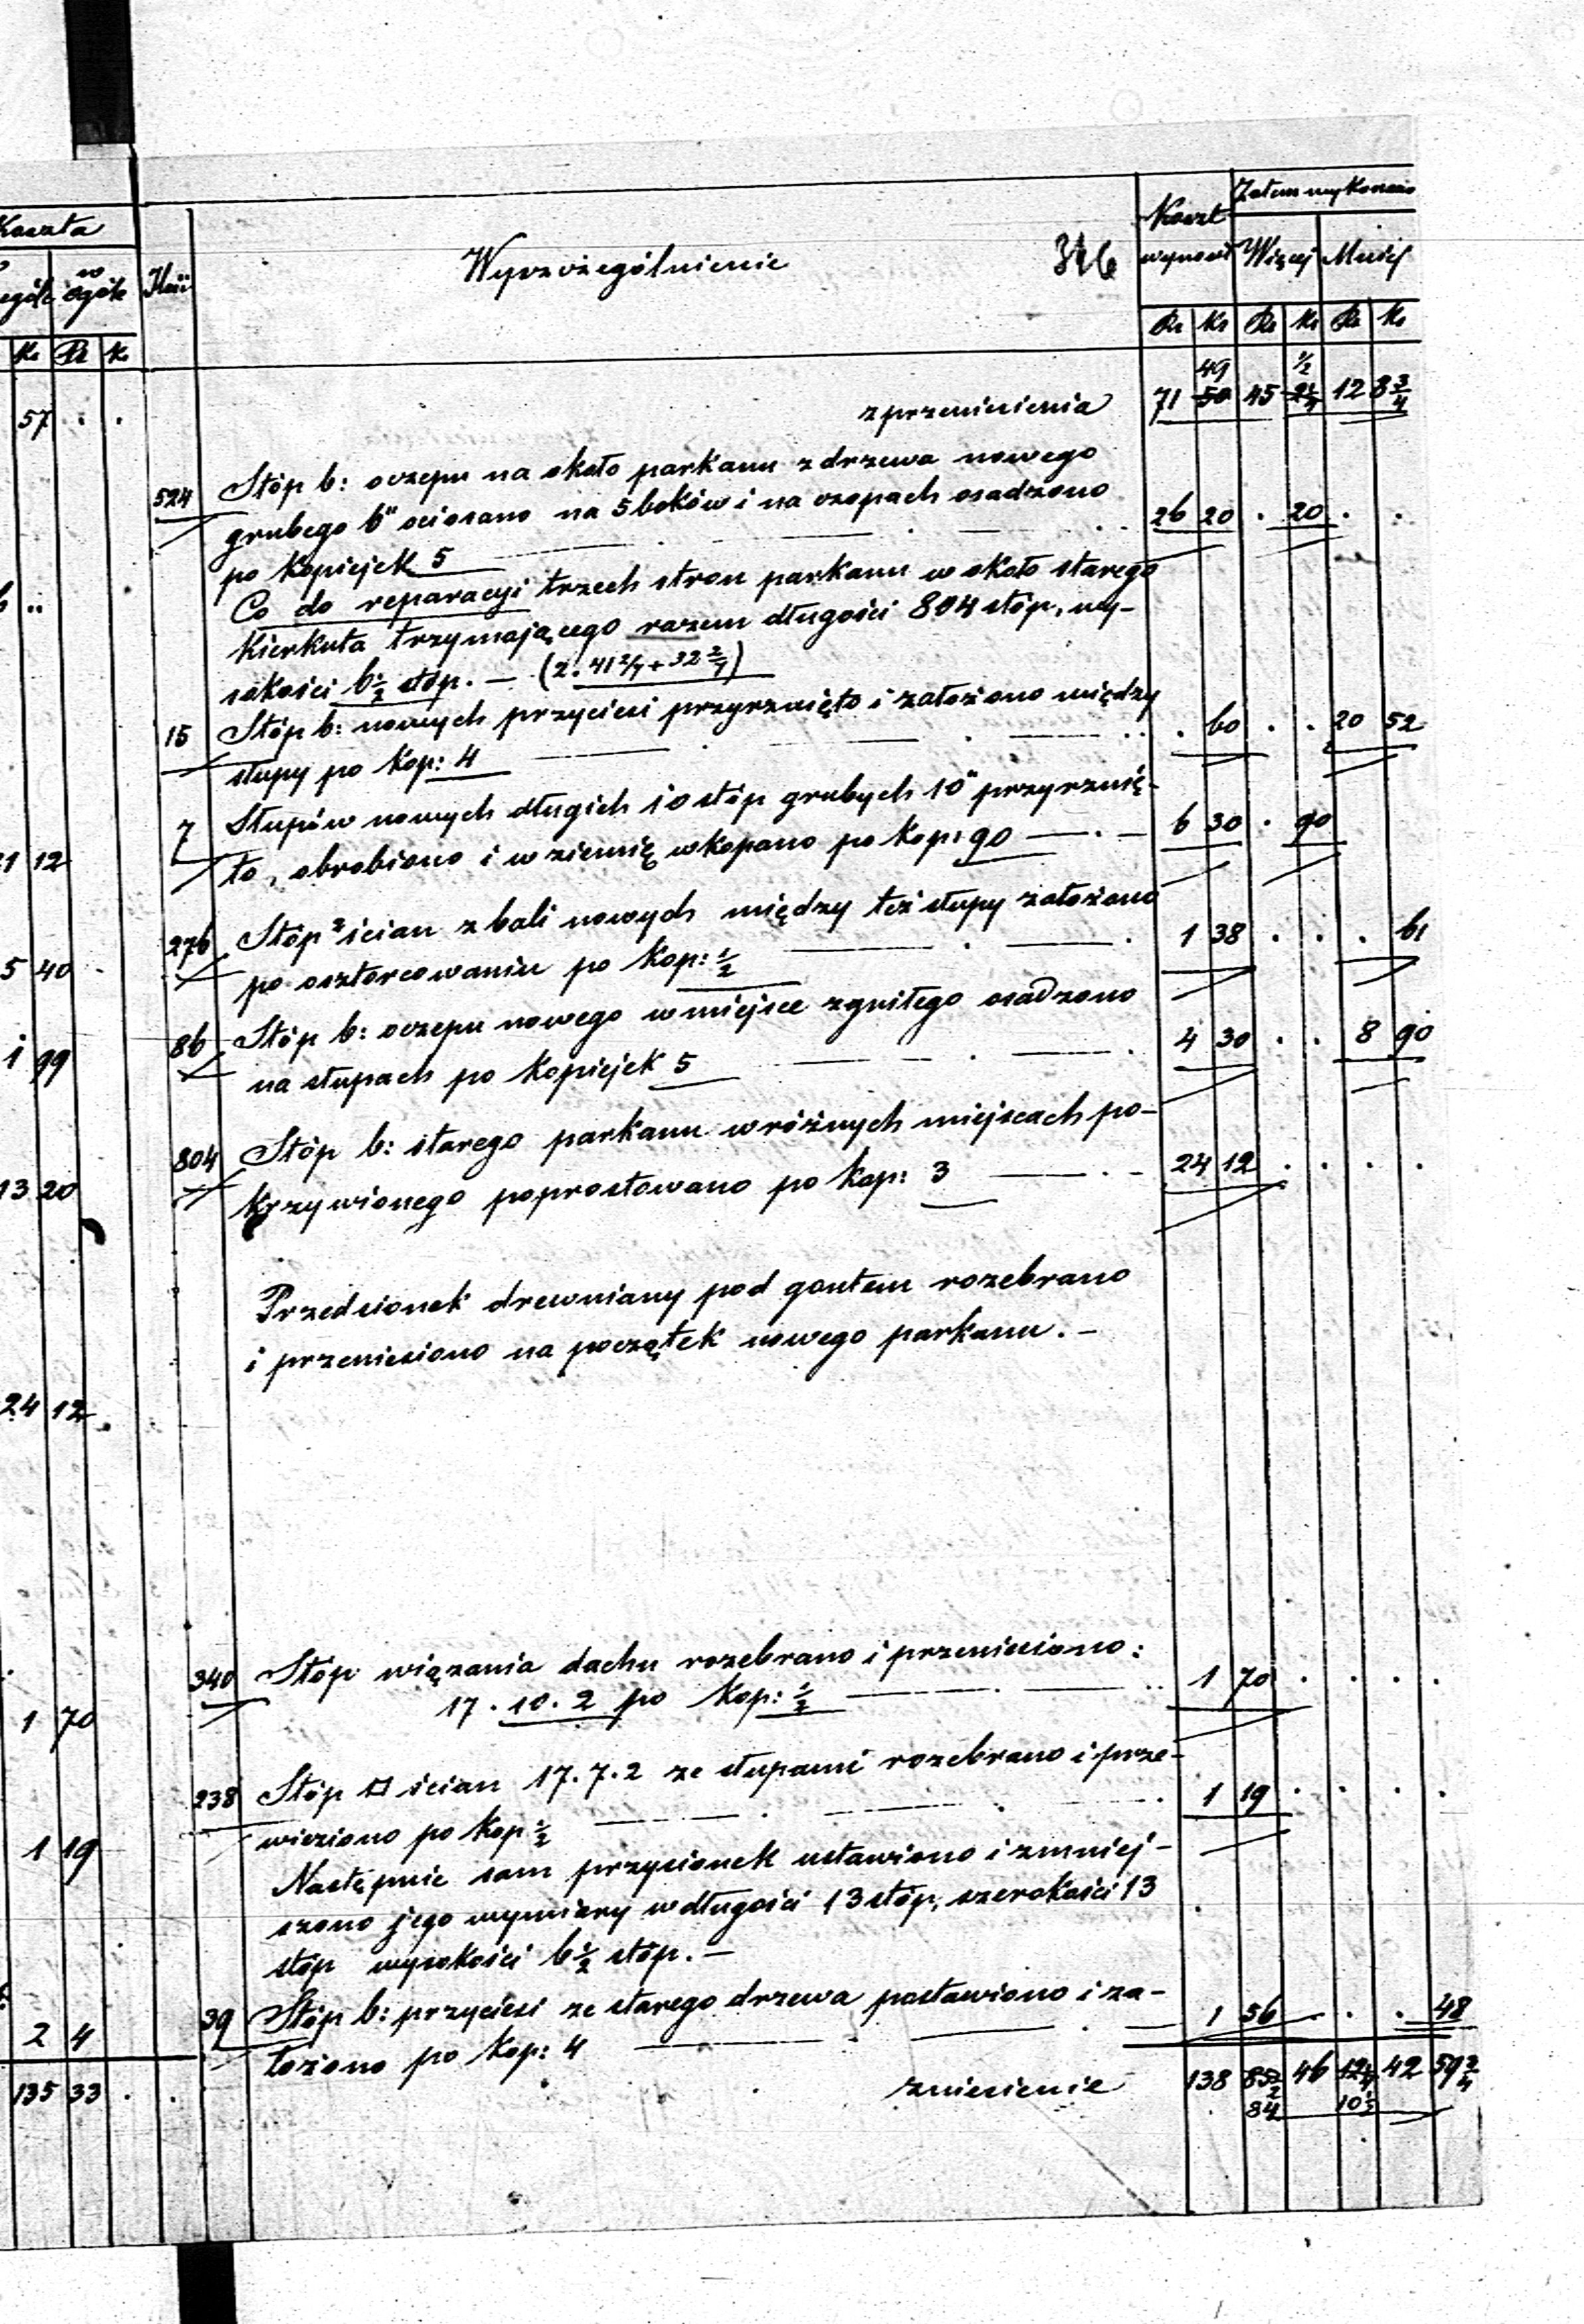 Koszta
w ogóle
Ks Rs Ks
57 . .
1 12
5 40 .
1 99
13 20
24 12
1 70
1 19
2 4
135 33 . .
Ilość
Wyszczególnienie
346
Koszt wynosi
Zatem wykonano
Więcej Mniej
Rs Ks Rs Ks Rs Ks
49 1/2
z przeniesienia 71 50 45 12 8 3/4
524 Stóp b: oczepu na około parkanu z drzewa nowego
grubego 6" ociosano na 5 boków i na czopach osadzono
po kopiejek 5 26 20 . 20 . .
Co do reparacyi trzech stron parkanu w około starego
Kierkuta trzymającego razem długości 804 stóp, wy-
sokości 6 1/2 stóp. — (2. 41 2/7 + 32 2/7)
15 Stóp b: nowych przyciesi przyrznięto i założono między
słupy po kop: 4 . 60 . . 20 52
7 Słupów nowych długich 10 stóp grubych 10" przyrznię-
to, obrobiono i w ziemię wkopano po kop: 90 6 30 . 90
276 Stóp² ścian z bali nowych między też słupy założono
po osztorcowaniu po kop: 1/2 1 38 . . . 61
86 Stóp b: oczepu nowego w miejsce zgniłego osadzono
na słupach po kopiejek 5 4 30 . . 8 90
804 Stóp b: starego parkanu w różnych miejscach po-
krzywionego poprostowano po kop: 3 24 12 . . . .
Przedsionek drewniany pod gontem rozebrano
i przeniesiono na początek nowego parkanu. —
340 Stóp wiązania dachu rozebrano i przeniesiono:
17 . 10 . 2 po kop: 1/2 1 70 . . . .
238 Stóp □ ścian 17 . 7 . 2 ze słupami rozebrano i prze-
wieziono po kop 1/2 1 19 . . . .
Następnie sam przysionek ustawiono i zmniej-
szono jego wymiary w długości 13 stóp, szerokości 13
stóp wysokości 6 1/2 stóp. —
39 Stóp b: przyciesi ze starego drzewa postawiono i za-
łożono po kop: 4 1 56 . . . 48
zniesienie 138 85 1/2 46 12 1/4 42 59 3/4
84 10 1/2